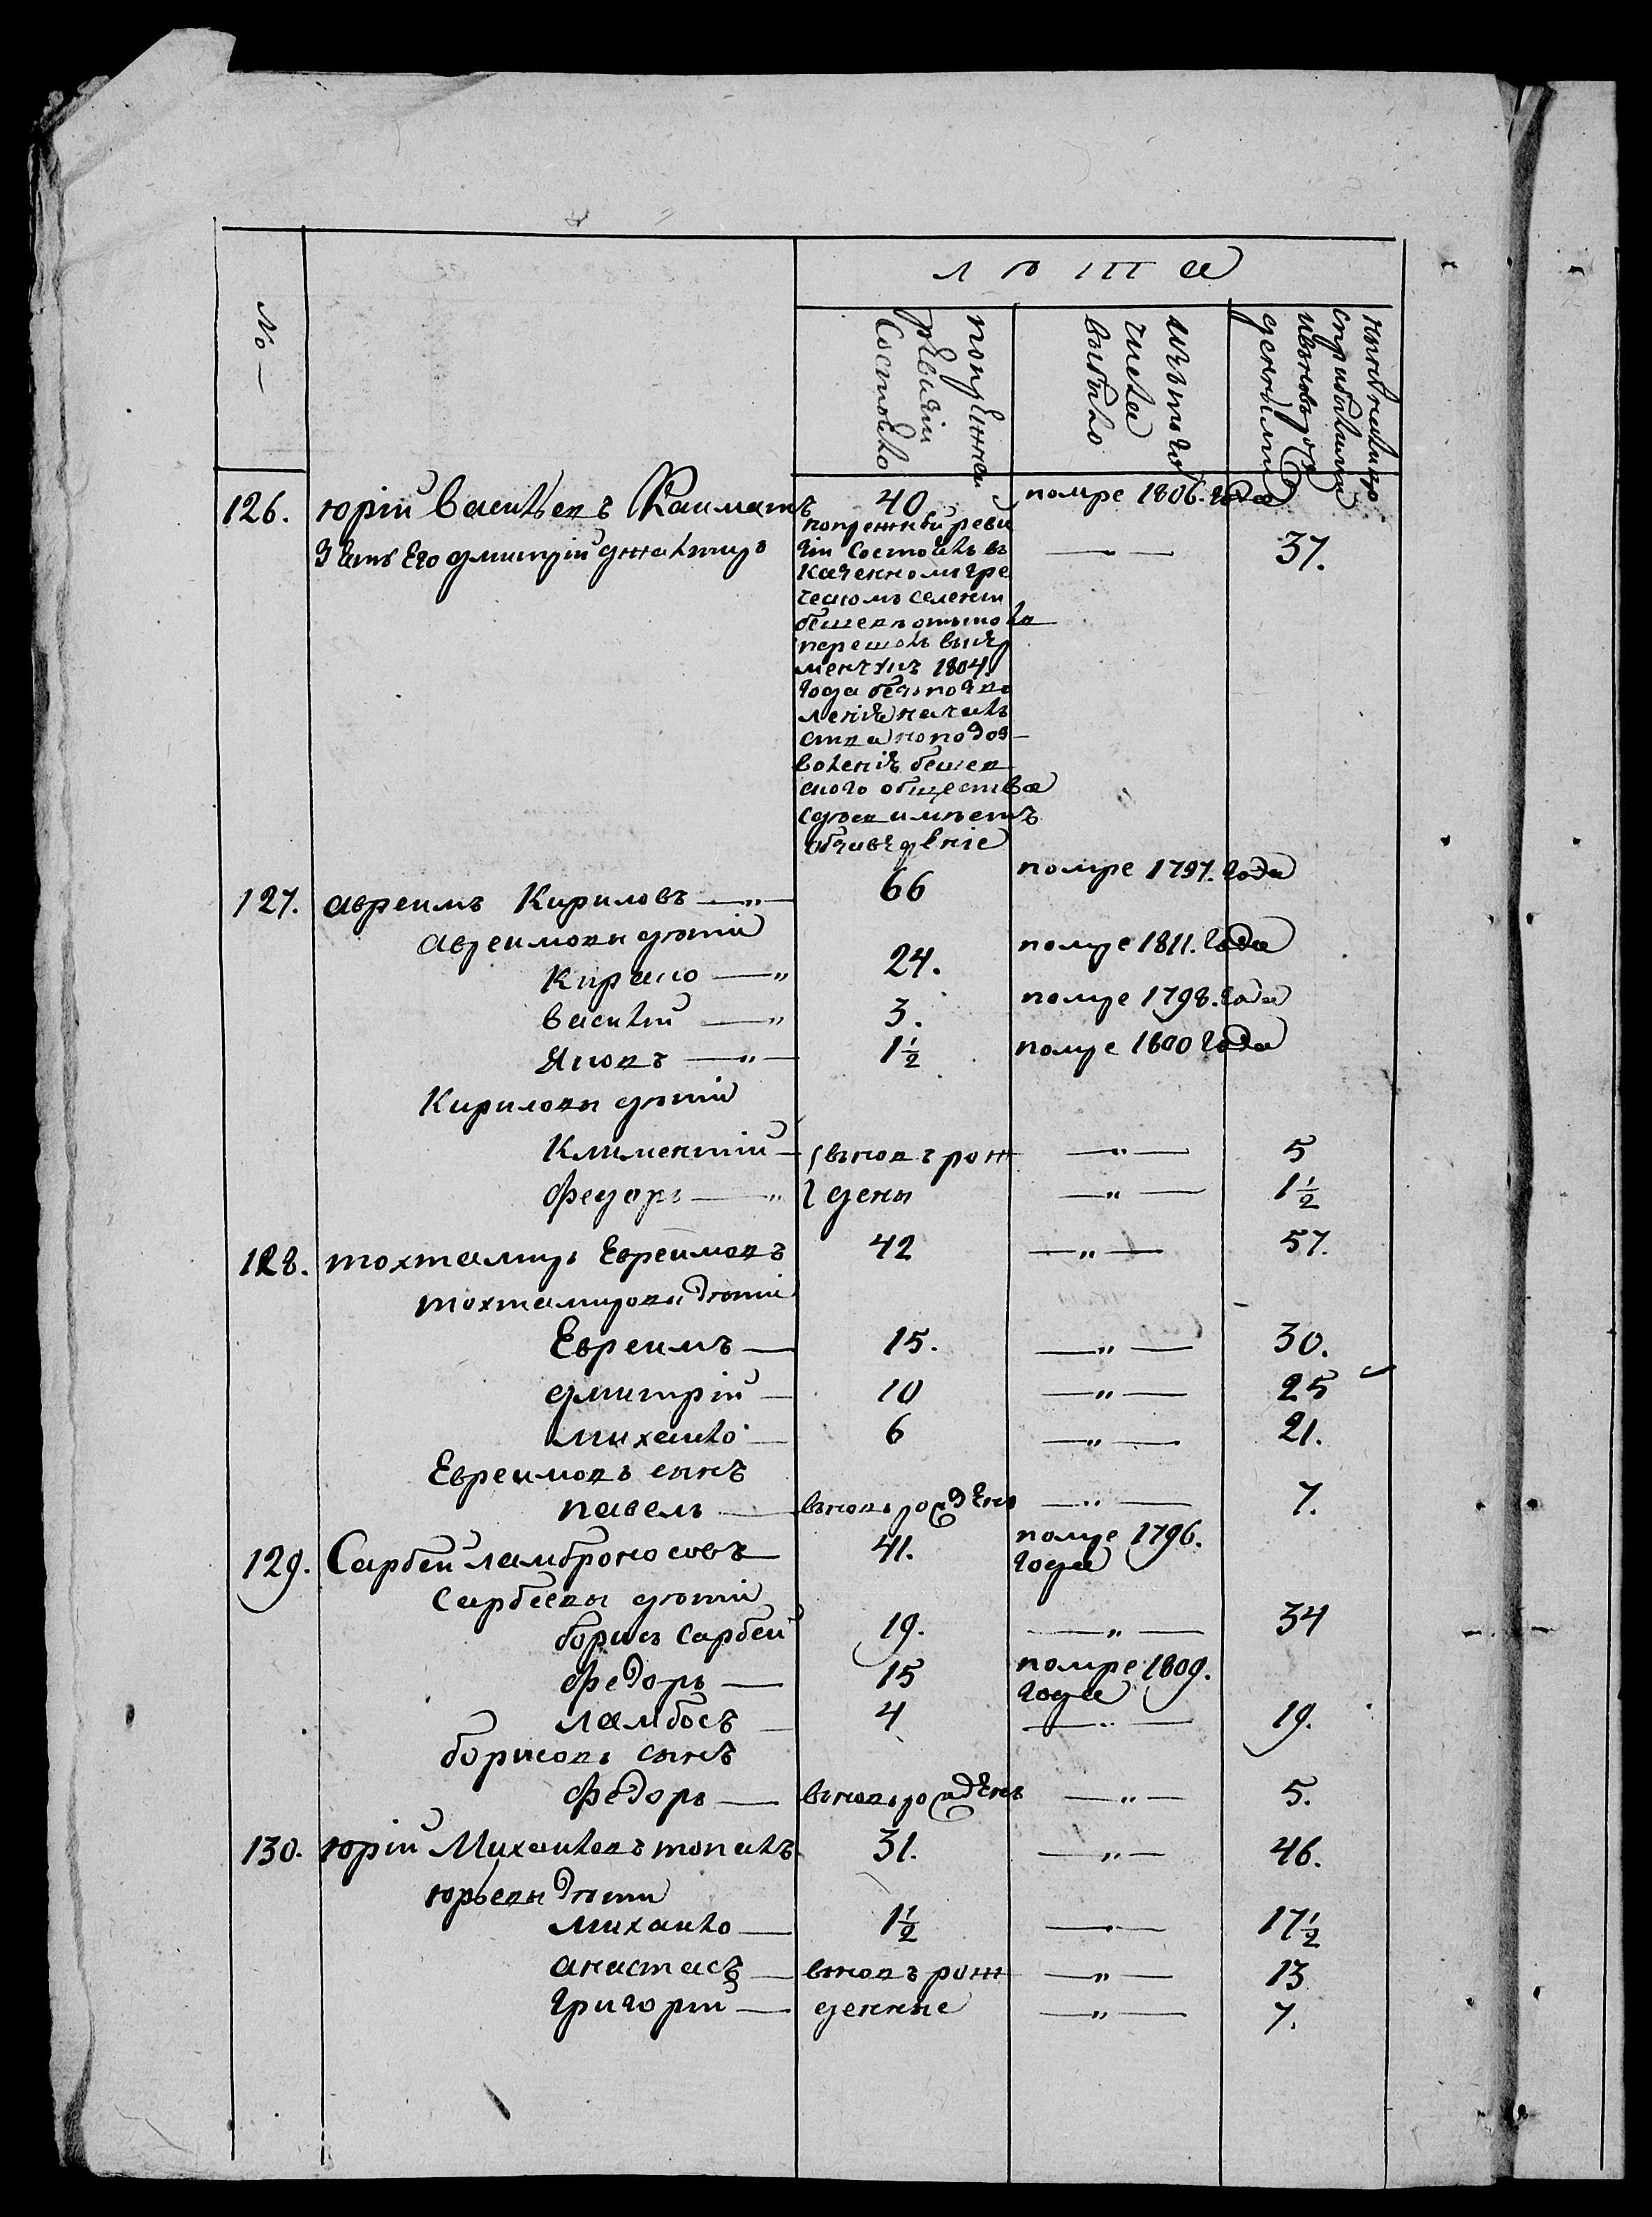 лѣта
№
по прежнеи
ревизіи
Состояло
изъ того
числа
выбыло
ныне налицо
съ прибылыми
и вновь рож
денными
126. юрій Васильевъ Каиматъ 40 помре 1806. года
Зять Его дмитрій джалтыръ — 37.
по прежней реви
зіи Состоялъ въ
казенномъ гре
ческомъ селеніи
бешевъ оттыль
перешолъ
1804.
года безъ позво
ленія началь
ства но по доз
воленію бешев
ского общества
здѣсь имѣетъ
обзаведеніе
127. авреимъ Кириловъ —„— 66 помре 1797. года
авреимовы дѣти
Кирило —„ 24. помре 1811. года
василій —„ 3. помре 1798. года
Яковъ —„— 1½ помре 1800 года
Кириловы дѣти
Климентій — вновь рож —„— 5
Федоръ —„ дены —„— 1½
128. тохтамиръ Евреимовъ 42 —„— 57.
тохтамировы дѣти
Евреимъ — 15. —„— 30.
дмитрій — 10 —„— 25
михаило — 6 —„— 21.
Евреимовъ сынъ
павелъ — вновь рожденъ —„— 7.
129. Сарбей ламброносовъ — 41. помре 1796.
года
Сарбеевы дѣти
борисъ Сарбей 19. —„— 34
Федоръ — 15 помре 1809.
года
ламбосъ — 4 —„— 19.
борисовъ сынъ
Федоръ — вновь рожденъ —„— 5.
130. юрій Михаиловъ топалъ 31. —„— 46.
юрьевы дѣти
михаило — 1½ —„— 17½
анастасъ — вновь рож —„— 13
григорій — денные —„— 7.